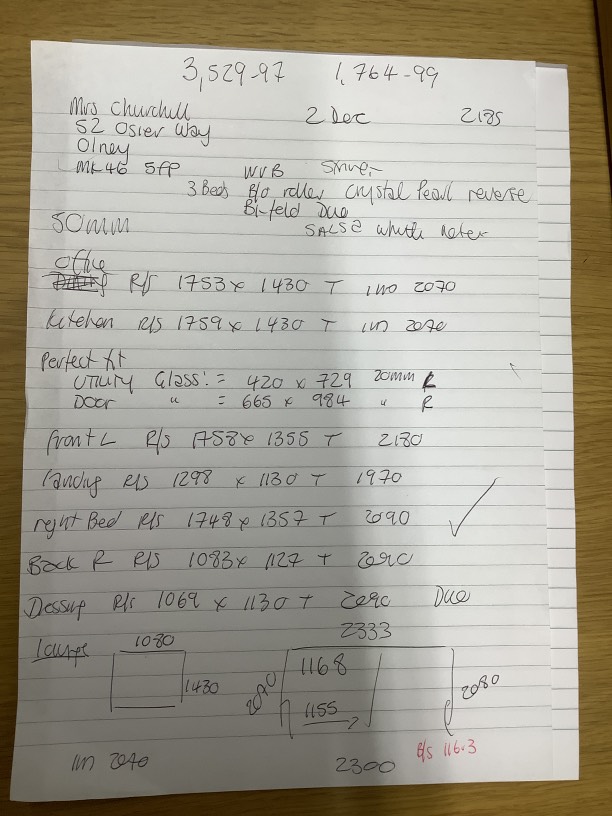 3,529-97 1,764-99
Mrs Churchill 2 Dec 2185
52 Osier Way
Olney
MK46 5FP WVB
3 Beds B/o roller Crystal Pearl reverse
Bi-feld Due
50mm SALSA
Office R/S 1753 x 1430 T 2070
Kitchen R/S 1759 x 1430 T
Perfect fit
Utility Glass: = 420 x 729 20mm L
Door " = 665 x 984 " R
Front L R/S 1758 x 1355 T 2180
Landing R/S 1298 x 1130 T 1970
right Bed R/S 1748 x 1357 T 2090
Back R R/S 1083 x 1127 T Zero
R/S 1069 x 1130 T Zero Due
Lounge 1080 2333
1430 1168 2080
1155
116.3
2300